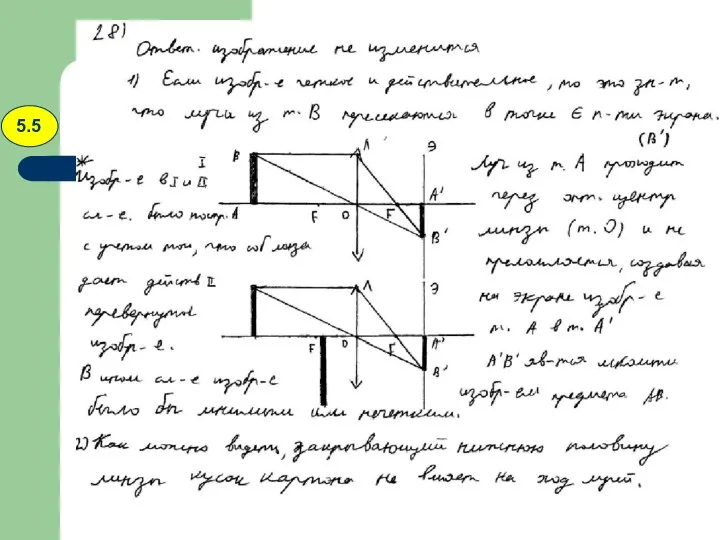 5.5
28)
Ответ. изображение не изменится
1) Если изобр-е четкое и действительное, то это зн-т,
что лучи из т. В пересекаются в точке ∈ п-ти экрана.
(B')
* I
Изобр-е в I и II
сл-е. было постр.
с учетом того, что соб линза
дает действ
перевернутое
изобр-е.
В ином сл-е изобр-е
было бы мнимым или нечетким.
B Л Э
A F O F A'
B'
II Л Э
F O F A'
B'
Луч из т. А проходит
через опт. центр
линзы (т. О) и не
преломляется, создавая
на экране изобр-е
т. А в т. А'
A'B' яв-тся
изобр-ем предмета AB.
2) Как можно видеть, закрывающий нижнюю половину
линзы кусок картона не влияет на ход лучей.